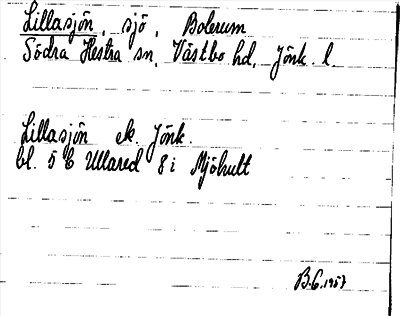 Lillasjön, sjö, Bolerum
Södra Hestra sn, Västbo hd, Jönk. l.
Lillasjön ek. Jönk.
bl. 5 C Ullared 8 i Mjöhult
B.G. 1957